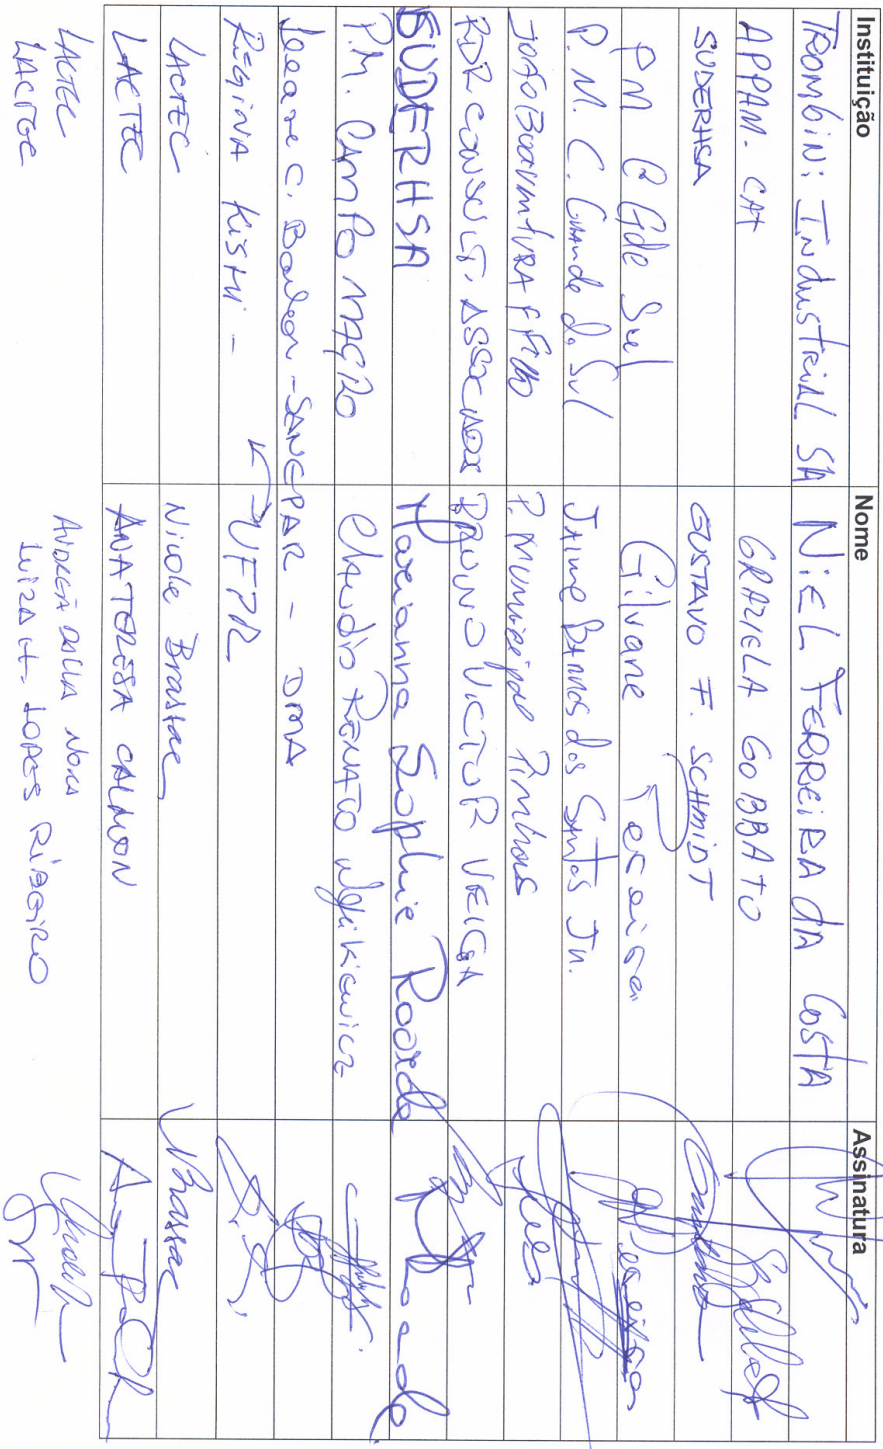 Instituição Nome Assinatura
TROMBINI INDUSTRIAL SA NIEL FERREIRA DA COSTA
APPAM. CAT GRAZIELA GOBBATO
SUDERHSA GUSTAVO F. SCHMIDT
PM C Gde Sul Gilvane Pereira
P. M. C. Grande do Sul JAIME BARROS dos Santos Jn.
JOÃO BOAVENTURA F FILHO P. Municipal Pinhais
RDR CONSULT. ASSOCIADOS BRUNO VICTOR VEIGA
SUDERHSA Marianna Sophie Roorda
P.M. CAMPO MAGRO Claudio RENATO
C. - SANEPAR - DMA
REGINA KISHI - UFPR
LACTEC Nicole Brassac
LACTEC ANA TERESA CALMON
LACTEC ANDREA DALLA NORA
LACTEC LUIZA H. LOPES RIBEIRO